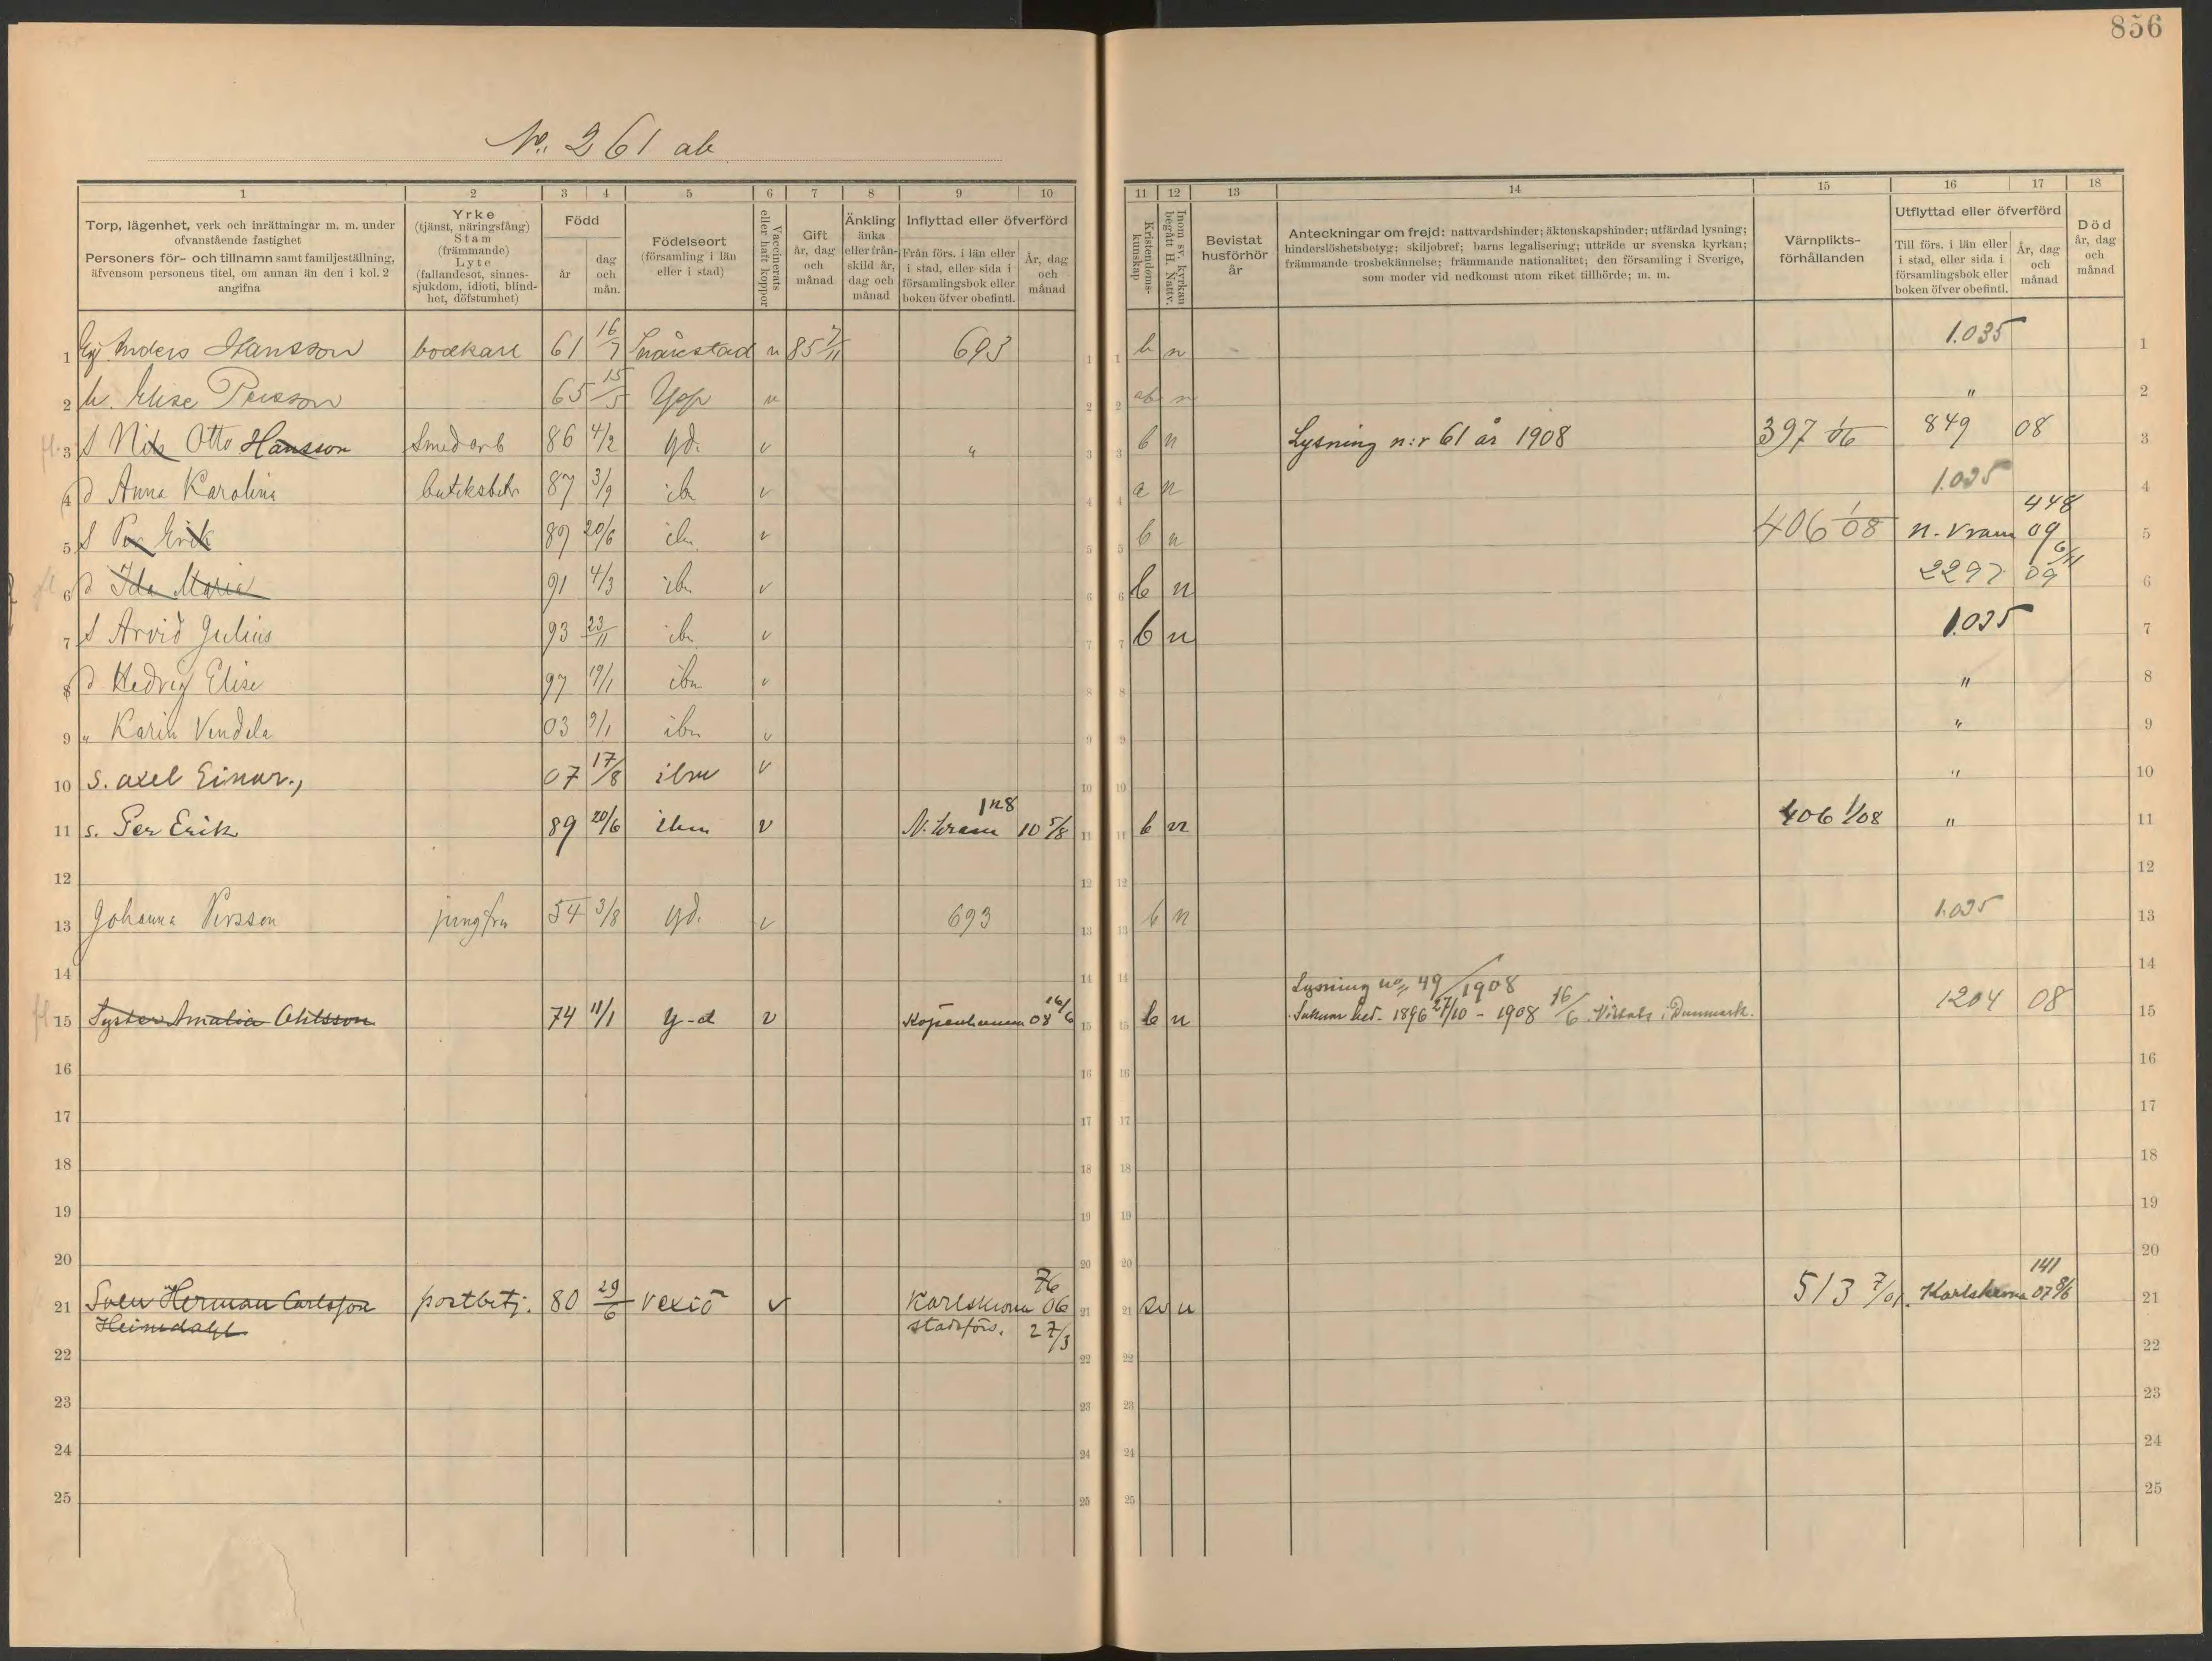 856
No. 261 ab
1 2 3 4 5 6 7 8 9 10
Torp, lägenhet, verk och inrättningar m. m. under ofvanstående fastighet
Personers för- och tillnamn samt familjeställning, äfvensom personens titel, om annan än den i kol. 2 angifna
Yrke (tjänst, näringsfång) Stam (främmande) Lyte (fallandesot, sinnessjukdom, idioti, blindhet, döfstumhet)
Född
år
dag och mån.
Födelseort (församling i län eller i stad)
Vaccinerats eller haft koppor
Gift år, dag och månad
Änkling änka eller frånskild år, dag och månad
Inflyttad eller öfverförd
Från förs. i län eller i stad, eller sida i församlingsbok eller boken öfver obefintl.
År, dag och månad
11 12 13 14 15 16 17 18
Kristendomskunskap
Inom sv. kyrkan begått H. Nattv.
Bevistat husförhör år
Anteckningar om frejd: nattvardshinder; äktenskapshinder; utfärdad lysning; hinderslöshetsbetyg; skiljobref; barns legalisering; utträde ur svenska kyrkan; främmande trosbekännelse; främmande nationalitet; den församling i Sverige, som moder vid nedkomst utom riket tillhörde; m. m.
Värnpliktsförhållanden
Utflyttad eller öfverförd
Till förs. i län eller i stad, eller sida i församlingsbok eller boken öfver obefintl.
År, dag och månad
Död år, dag och månad
1 Anders Hansson 61 16/7 85 7/11 693 b n 1.035
2 h. Elise Persson 65 15/5 ab n "
3 S Nils Otto Hansson Smedarb 86 4/2 yd. v " b n Lysning n:r 61 år 1908 397 1/06 849 08
4 d Anna Karolina 87 3/9 ibm v a n 1.035
5 S Per Erik 89 20/6 ibm v b n 406 1/08 N. Vram 448 09 6/11
6 d Ida Maria 91 4/3 ibm v b n 2297 09
7 S Arvid Julius 93 23/11 ibm v b n 1.035
8 d Hedvig Elise 97 19/1 ibm v "
9 " Karin Vendela 03 9/1 ibm v "
10 s. Axel Einar., 07 17/8 ibm v "
11 s. Per Erik 89 20/6 ibm v N. Wram 10 5/8 b n 406 1/08 "
12
13 Johanna Persson jungfru 54 3/8 yd. v 693 b n 1.035
14
Lysning no 49/1908
15 Syster Amalia Ohlsson 74 11/1 y-d v Köpenhamn 08 16/6 b n 1896 27/10 - 1908 16/6 i Danmark. 1204 08
16
17
18
19
20
21 Sven Herman Carlsson postbetj. 80 29/6 Vexiö v Karlskrona stadsförs. 76 06 27/3 n 513 7/01. Karlskrona 141 07 8/6
Heimdahl
22
23
24
25